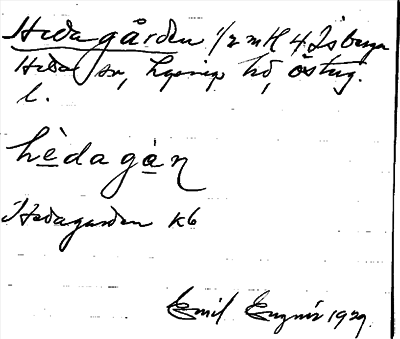 Hedagården 1/2 mtl 4 Isberga
Heda sn, Lysings hd, Östug.
l.
hèdagán
Hedagården Kb
Emil Enguér 1929.